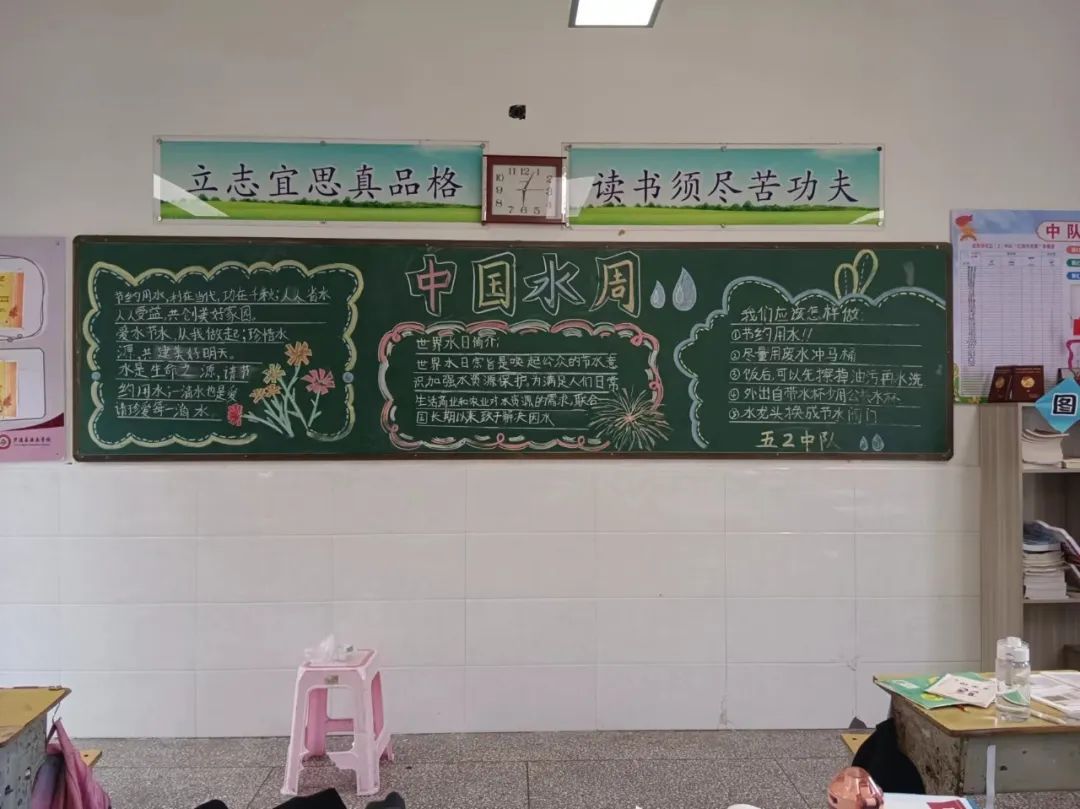 立志宜思真品格
读书须尽苦功夫
11 12 1
10
9
8
7 6 5
中队
中国水周
节约用水,利在当代,功在千秋;人人省水
人人爱蓝,共创美好家园。
爱水节水,从我做起;珍惜水
源,共建美好明天。
水是生命之源,请节
约用水;一滴水也是爱
请珍爱每一滴水
世界水日简介:
世界水日宗旨是唤起公众的节水意
识,加强水资源保护,为满足人们日常
生活商业和农业对水资源的需求,联合
国长期以来致于解决因水
我们应该怎样做:
①节约用水!!
②尽量用废水冲马桶
③饭后,可以先擦指油污再水洗
④外出自带水杯少用公共水杯
⑤水龙头换成节水阀门
五2中队
图